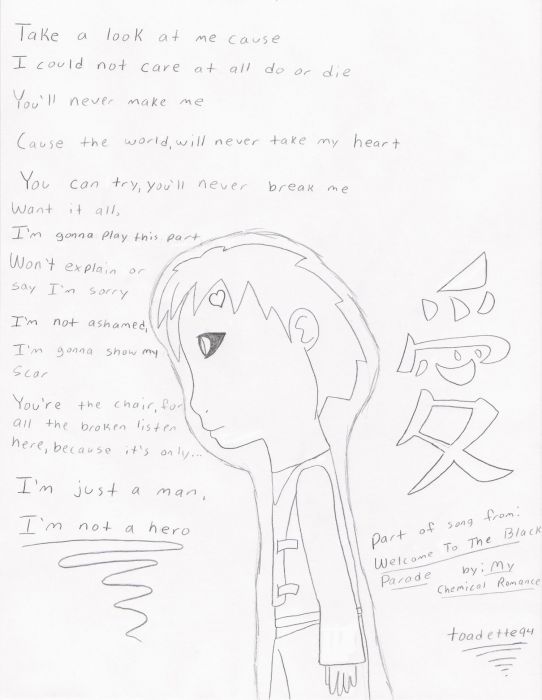 Take a look at me cause
I could not care at all do or die
You'll never make me
Cause the world, will never take my heart
You can try, you'll never break me
Want it all,
I'm gonna play this part
Won't explain or
say I'm sorry
I'm not ashamed,
I'm gonna show my
scar
You're the chair, for
all the broken listen
here, because it's only...
I'm just a man,
I'm not a hero
愛
Part of song from:
Welcome To The Black
Parade by: My
Chemical Romance
toadette94